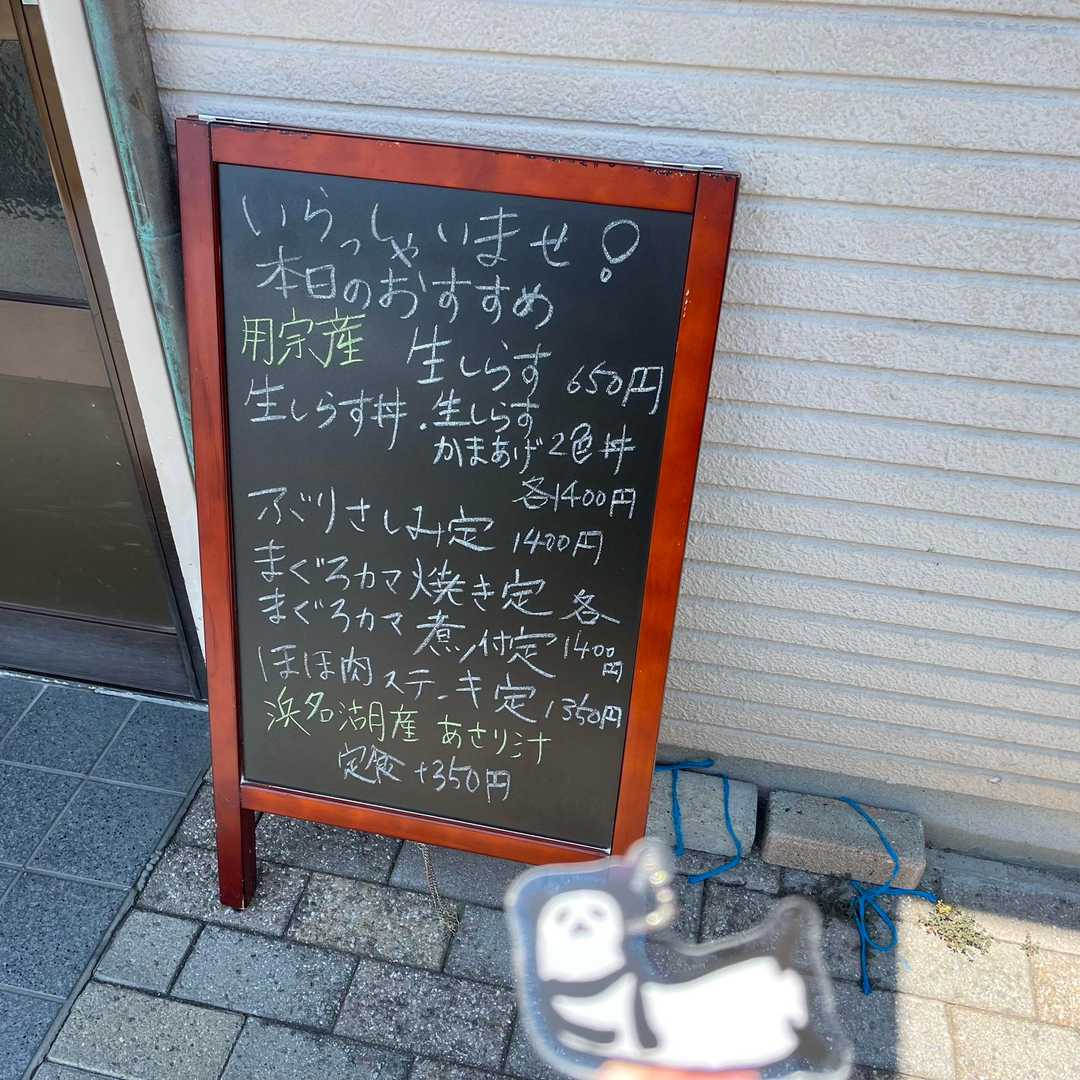 いらっしゃいませ!
本日のおすすめ
用宗産 生しらす 650円
生しらす丼・生しらす
かまあげ2色丼
各1400円
ぶりさしみ定 1400円
まぐろカマ焼き定 各
まぐろカマ煮付定 1400円
ほほ肉ステーキ定 1350円
浜名湖産 あさり汁
定食 +350円